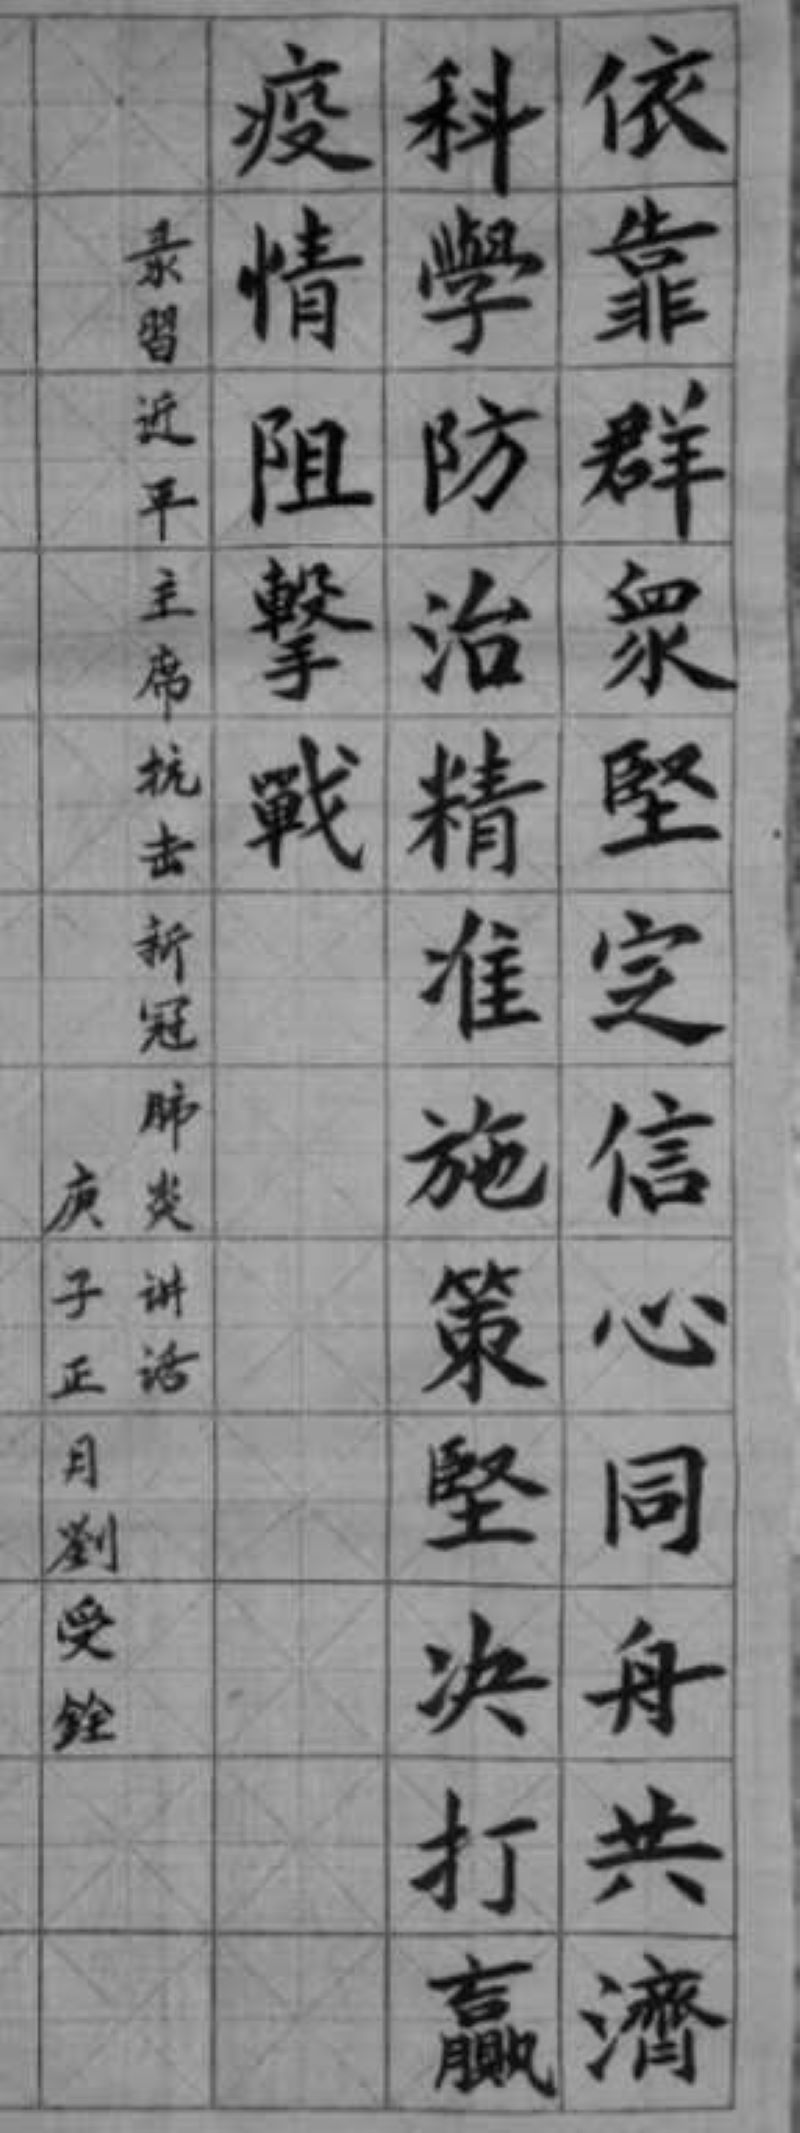 依靠群眾堅定信心同舟共濟
科學防治精准施策堅决打贏
疫情阻擊戰
录習近平主席抗击新冠肺炎讲话
庚子正月劉受銓